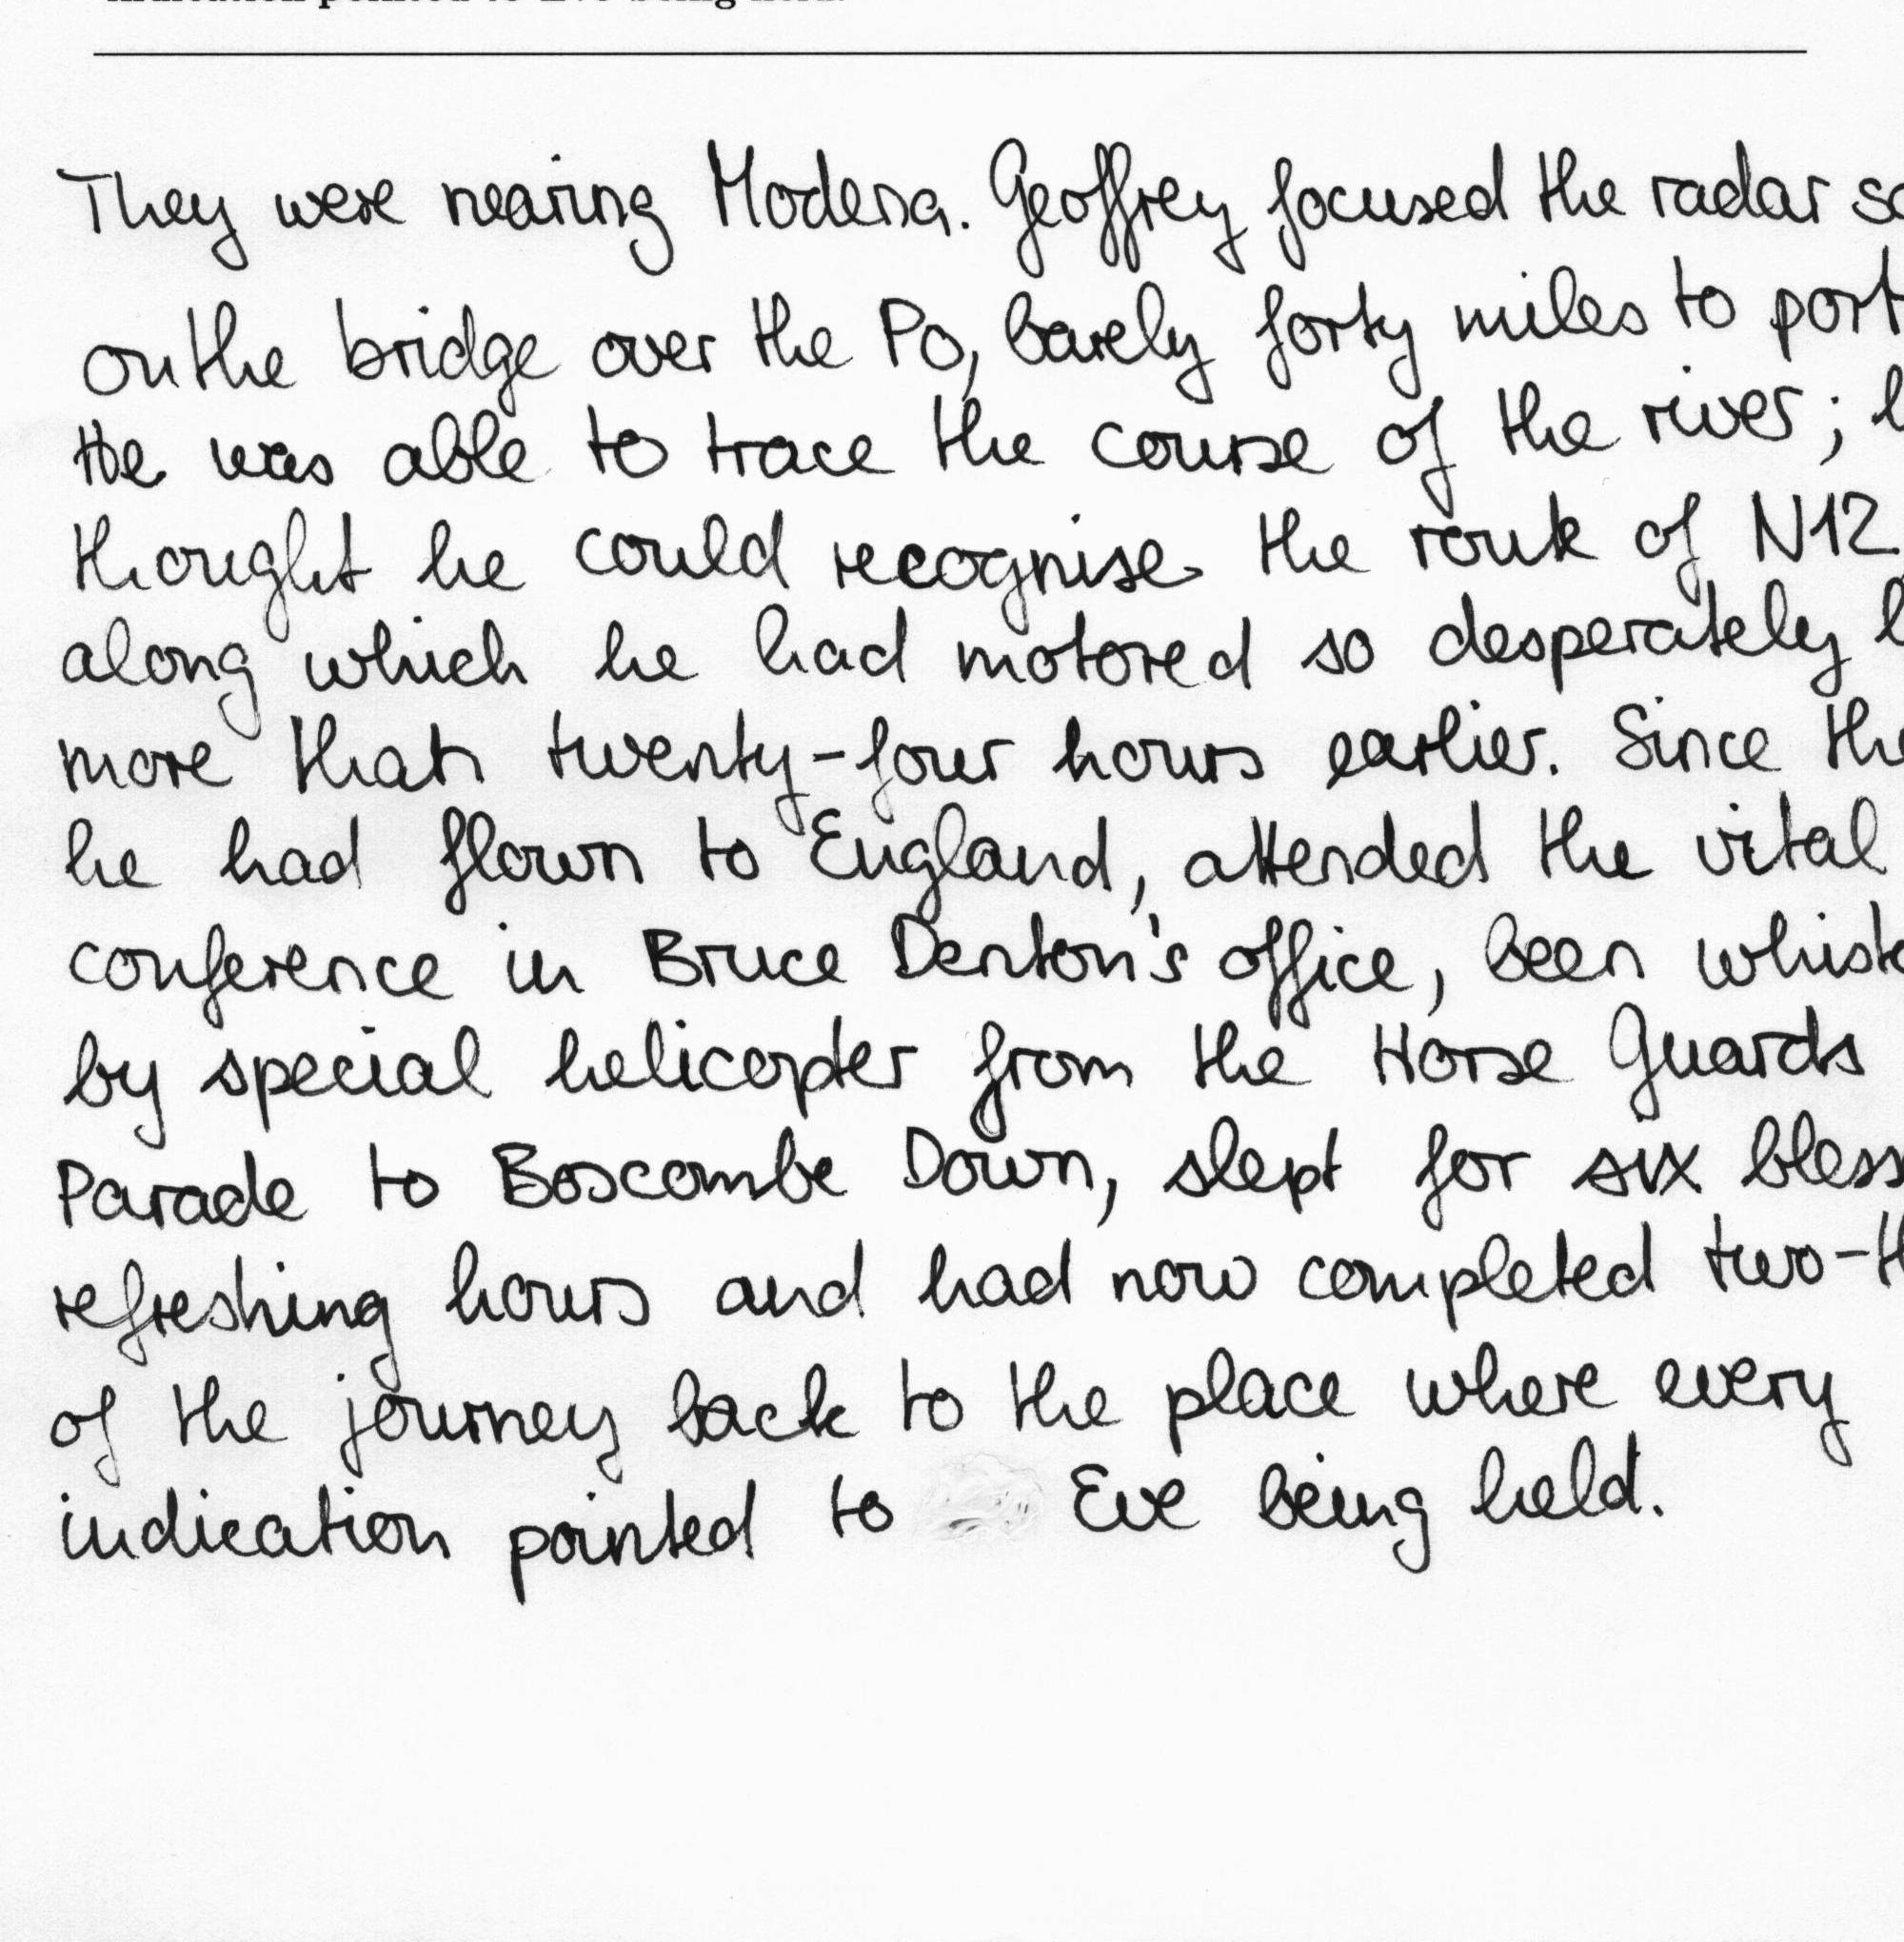 They were nearing Modena. Geoffrey focused the radar
on the bridge over the Po, barely forty miles to port
He was able to trace the course of the river;
thought he could recognise the route of N12,
along which he had motored so desperately
more than twenty-four hours earlier. Since
he had flown to England, attended the vital
conference in Bruce Denton's office, been
by special helicopter from the Horse Guards
Parade to Boscombe Down, slept for six
refreshing hours and had now completed
of the journey back to the place where every
indication pointed to Eve being held.